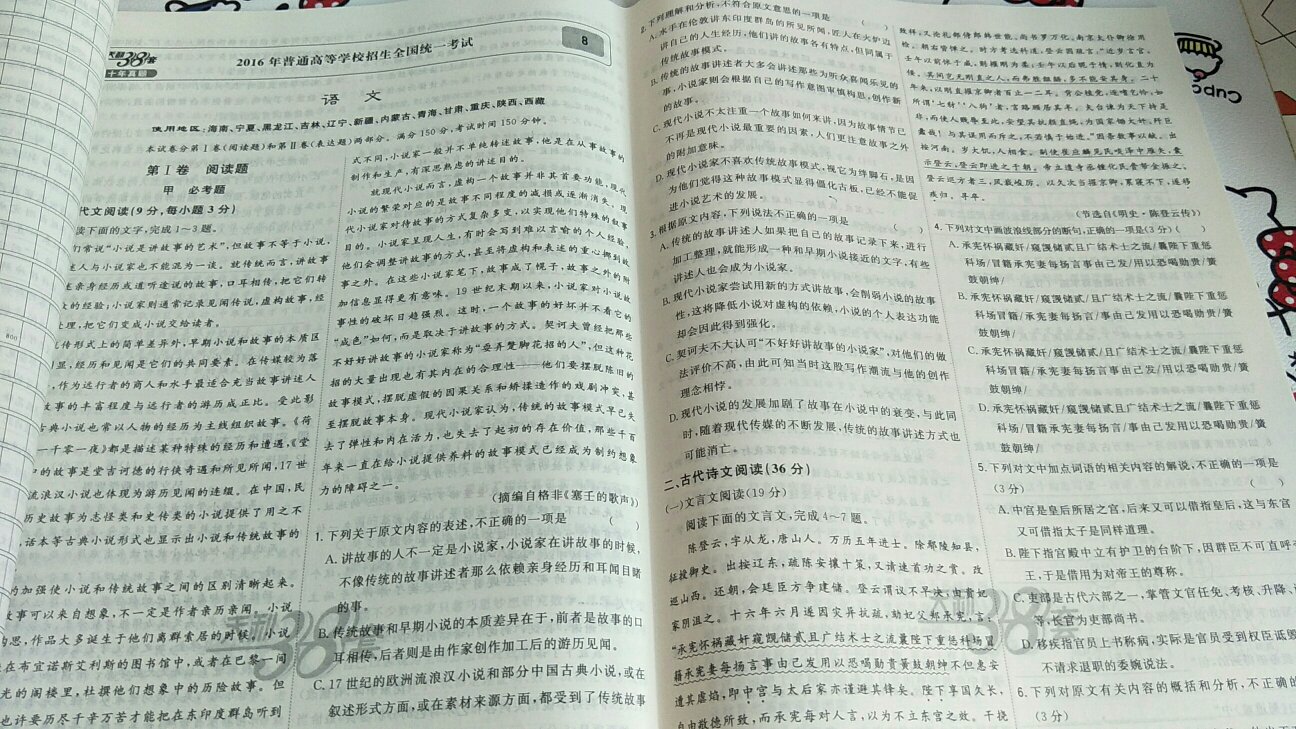 天利38套
十年真题
2016年普通高等学校招生全国统一考试
8
语 文
使用地区:海南、宁夏、黑龙江、吉林、辽宁、新疆、内蒙古、青海、甘肃、重庆、陕西、西藏
本试卷分第Ⅰ卷(阅读题)和第Ⅱ卷(表达题)两部分。满分150分,考试时间150分钟。
第Ⅰ卷 阅读题
甲 必考题
代文阅读(9分,每小题3分)
读下面的文字,完成1~3题。
们常说“小说是讲故事的艺术”,但故事不等于小说,
述人与小说家也不能混为一谈。就传统而言,讲故事
亲身经历或道听途说的故事,口耳相传,把它们转
的经验;小说家则通常记录见闻传说,虚构故事,经
理,把它们变成小说交给读者。
传形式上的简单差异外,早期小说和故事的本质区
显,经历和见闻是它们的共同要素。在传媒较为落
,作为远行者的商人和水手最适合充当故事讲述人
故事的丰富程度与远行者的游历成正比。受此影
古典小说也常以人物的经历为主线组织故事。《荷
一千零一夜》都是描述某种特殊的经历和遭遇,《堂
中的故事是堂吉诃德的行侠奇遇和所见所闻,17世
流浪汉小说也体现为游历见闻的连缀。在中国,民
历史故事为志怪类和史传类的小说提供了用之不
话本等古典小说形式也显示出小说和传统故事的
的加强使小说和传统故事之间的区别清晰起来。
事可以来自想象,不一定是作者亲历亲闻。小说
构思,作品大多诞生于他们离群索居的时候,小说
在布宜诺斯艾利斯的图书馆中,或者在巴黎一间
光的阁楼里,杜撰他们想象中的历险故事。但
也许要历尽千辛万苦才能把在东印度群岛听到
式不同,小说家一般并不单纯转述故事,他是在从事故事的
制作和生产,有深思熟虑的讲述目的。
就现代小说而言,虚构一个故事并非其首要功能,现代
小说的繁荣对应的是故事不同程度的减损或逐渐消失,现
代小说家对待故事的方式复杂多变,以实现他们特殊的叙事
目的。小说家呈现人生,有时会写到难以言喻的个人经验,
他们会调整讲故事的方式,甚至将虚构和表述的重心挪到故
事之外。在这些小说家笔下,故事成了幌子,故事之外的附
加信息显得更有意味。19世纪末期以来,小说家对小说故
事性的破坏日趋强烈。这时,一个故事的好坏并不看它的
“成色”如何,而是取决于讲故事的方式。契诃夫曾经把那些
不好好讲故事的小说家称为“耍弄蹩脚花招的人”,但这种花
招的大量出现也有其内在的合理性——他们要摆脱陈旧的
故事模式,摆脱虚假的因果关系和矫揉造作的戏剧冲突,甚
至摆脱故事本身。现代小说家认为,传统的故事模式早已失
去了弹性和内在活力,也失去了起初的存在价值,那些千百
年来一直在给小说提供养料的故事模式已经成为制约想象
力的障碍之一。
(摘编自格非《塞壬的歌声》)
1.下列关于原文内容的表述,不正确的一项是 ( )
A.讲故事的人不一定是小说家,小说家在讲故事的时候,
不像传统的故事讲述者那么依赖亲身经历和耳闻目睹
的事。
B.传统故事和早期小说的本质差异在于,前者是故事的口
耳相传,后者则是由作家创作加工后的游历见闻。
C.17世纪的欧洲流浪汉小说和部分中国古典小说,或在
叙述形式方面,或在素材来源方面,都受到了传统故事
2.下列理解和分析,不符合原文意思的一项是 ( )
A.水手在伦敦讲东印度群岛的所见所闻,匠人在火炉边
讲自己的人生经历,他们讲的故事各有特点,但同属于
传统故事模式。
B.传统的故事讲述者大多会讲述那些为听众喜闻乐见的
事,小说家则会根据自己的写作意图审慎构思,创作新
的故事。
C.现代小说不太注重一个故事如何来讲,因为故事情节已
不再是现代小说最重要的因素,人们更注意故事之外
的附加意味。
D.现代小说家不喜欢传统故事模式,视它为绊脚石,是因
为他们觉得这种故事模式显得僵化古板,已经不能促
进小说艺术的发展。
3.根据原文内容,下列说法不正确的一项是 ( )
A.传统的故事讲述人如果把自己的故事记录下来,进行
加工整理,就能形成一种和早期小说接近的文字,有些
讲述人也会成为小说家。
B.现代小说家尝试用新的方式讲故事,会削弱小说的故事
性,这将降低小说对虚构的依赖,小说的个人表达功能
却会因此得到强化。
C.契诃夫不大认可“不好好讲故事的小说家”,对他们的做
法评价不高,由此可知当时这股写作潮流与他的创作
理念相悖。
D.现代小说的发展加剧了故事在小说中的衰变,与此同
时,随着现代传媒的不断发展,传统的故事讲述方式也
可能消亡。
二、古代诗文阅读(36分)
(一)文言文阅读(19分)
阅读下面的文言文,完成4~7题。
陈登云,字从龙,唐山人。万历五年进士。除鄢陵知县,
征授御史。出按辽东,疏陈安攘十策,又请速首功之赏。改
巡山西。还朝,会廷臣方争建储。登云谓议不早决,由贵妃
家阴沮之。十六年六月遂因灾异抗疏,劾妃父郑承宪,言:
“承宪怀祸藏奸窥觊储贰且广结术士之流曩陛下重惩科场冒
籍承宪妻每扬言事由己发用以恐喝勋贵簧鼓朝绅不但惠安
遭其虐焰,即中宫与太后家亦谨避其锋矣。陛下享国久长,
自由敬德所致,而承宪每对人言,以为不立东宫之效。干挠
4.下列对文中画波浪线部分的断句,正确的一项是(3分)( )
A.承宪怀祸藏奸/窥觊储贰且广结术士之流/曩陛下重惩
科场/冒籍承宪妻每扬言事由己发/用以恐喝勋贵/簧
鼓朝绅/
B.承宪怀祸藏奸/窥觊储贰/且广结术士之流/曩陛下重惩
科场冒籍/承宪妻每扬言/事由己发/用以恐喝勋贵/簧
鼓朝绅/
C.承宪怀祸藏奸/窥觊储贰/且广结术士之流/曩陛下重惩
科场冒籍/承宪妻每扬言事由己发/用以恐喝勋贵/簧
鼓朝绅/
D.承宪怀祸藏奸/窥觊储贰且广结术士之流/曩陛下重惩
科场/冒籍承宪妻每扬言/事由己发/用以恐喝勋贵/簧
鼓朝绅/
5.下列对文中加点词语的相关内容的解说,不正确的一项是
(3分) ( )
A.中宫是皇后所居之宫,后来又可以借指皇后,这与东宫
又可借指太子是同样道理。
B.陛下指宫殿中立有护卫的台阶下,因群臣不可直呼
王,于是借用为对帝王的尊称。
C.吏部是古代六部之一,掌管文官任免、考核、升降、
等,长官为吏部尚书。
D.移疾指官员上书称病,实际是官员受到权臣诋毁
不请求退职的委婉说法。
6.下列对原文有关内容的概括和分析,不正确的
(3分)
(节选自《明史·陈登云传》)
天利38套
天利38套
Cupc